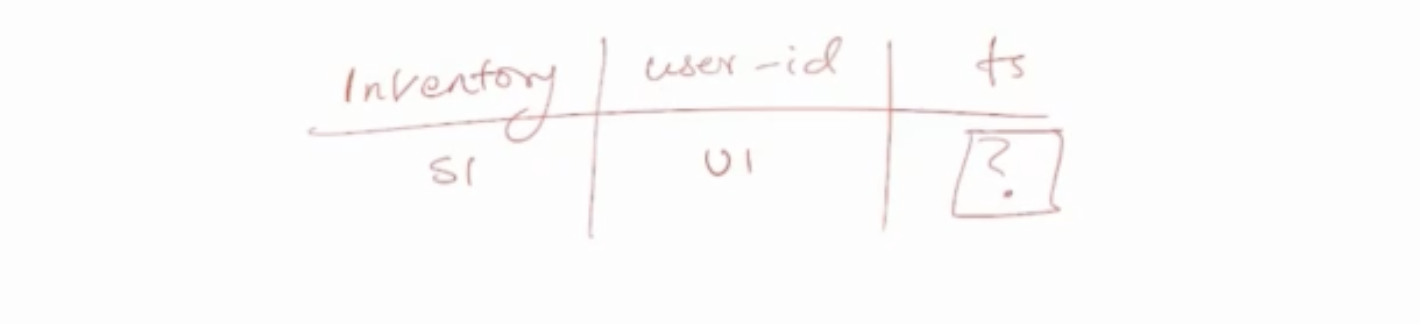 Inventory user-id ts
S1 U1 ?